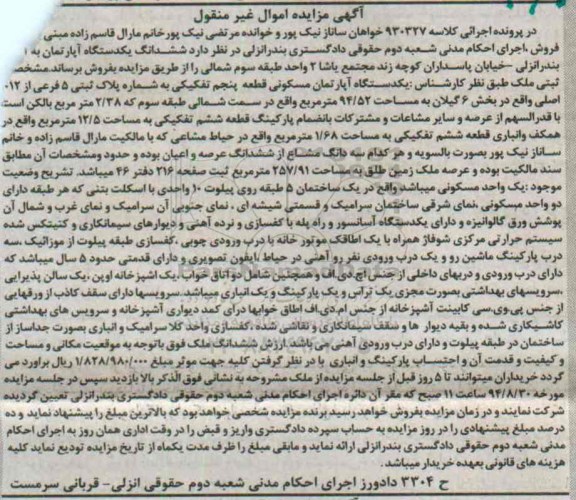 آگهی مزایده اموال غیر منقول
در پرونده اجرائی کلاسه ۹۳۰۳۲۷ خواهان ساناز نیک پور و خوانده مرتضی نیک پورخانم مارال قاسم زاده مبنی
فروش ،اجرای احکام مدنی شعبه دوم حقوقی دادگستری بندرانزلی در نظر دارد ششدانگ یکدستگاه آپارتمان به
بندرانزلی –خیابان پاسداران کوچه زند مجتمع یاشا ۲ واحد طبقه سوم شمالی را از طریق مزایده بفروش برساند.مشخصا
ثبتی ملک طبق نظر کارشناس :یکدستگاه آپارتمان مسکونی قطعه پنجم تفکیکی به شماره پلاک ثبتی ۵ فرعی از ۰۱۲
اصلی واقع در بخش ۶ گیلان به مساحت ۹۴/۵۲ مترمربع واقع در سمت شمالی طبقه سوم که ۲/۳۸ متر مربع بالکن است
با قدرالسهم از عرصه و سایر مشاعات و مشترکات بانضمام پارکینگ قطعه ششم تفکیکی به مساحت ۱۲/۵ مترمربع واقع در
همکف وانباری قطعه ششم تفکیکی به مساحت ۱/۶۸ مترمربع واقع در حیاط مشاعی که با مالکیت مارال قاسم زاده و خانم
ساناز نیک پور بصورت بالسویه و هر کدام سه دانگ مشاع از ششدانگ عرصه و اعیان بوده و حدود ومشخصات آن مطابق
سند مالکیت بوده و عرصه ملک زمین طلق به مساحت ۲۵۷/۹۱ مترمربع ثبت صفحه ۲۱۶ دفتر ۴۶ میباشد. تشریح وضعیت
موجود :یک واحد مسکونی میباشد واقع در یک ساختمان ۵ طبقه روی پیلوت ۱۰ واحدی با اسکلت بتنی که هر طبقه دارای
دو واحد مسکونی ،نمای شرقی ساختمان سرامیک و قسمتی شیشه ای ، نمای جنوبی آن سرامیک و نمای غرب و شمال آن
پوشش ورق گالوانیزه و دارای یکدستگاه آسانسور و راه پله با کفسازی و نرده آهنی و دیوارهای سیمانکاری و کنیتکس شده
سیستم حرارتی مرکزی شوفاژ همراه با یک اطاقک موتور خانه با درب ورودی چوبی ،کفسازی طبقه پیلوت از موزائیک ،سه
درب پارکینگ ماشین رو و یک درب ورودی نفر رو آهنی در حیاط ،ایفون تصویری و دارای قدمتی حدود ۵ سال میباشد که
دارای درب ورودی و دربهای داخلی از جنس اچ.دی.اف و همچنین شامل دو اتاق خواب ،یک آشپزخانه اوپن ،یک سالن پذیرایی
،سرویسهای بهداشتی بصورت مجزی یک تراس و یک پارکینگ و یک انباری میباشد.سرویسها دارای سقف کاذب از ورقهایی
از جنس پی.وی.سی کابینت آشپزخانه از جنس ام.دی.اف اطاق خوابها درای کمد دیواری آشپزخانه و سرویس های بهداشتی
کاشیکاری شده و بقیه دیوار ها و سقف سیمانکاری و نقاشی شده ،کفسازی واحد کلا سرامیک و انباری بصورت جداساز از
ساختمان در طبقه پیلوت و دارای درب ورودی آهنی می باشد.ارزش ششدانگ ملک فوق باتوجه به موقعیت مکانی و مساحت
و کیفیت و قدمت آن و احتساب پارکینگ و انباری با در نظر گرفتن کلیه جهت موثر مبلغ ۱/۸۲۸/۹۸۰/۰۰۰ ریال براورد می
گردد خریداران میتوانند تا ۵ روز قبل از جلسه مزایده از ملک مشروحه به نشانی فوق الذکر بالا بازدید سپس در جلسه مزایده
مورخه ۹۴/۸/۳۰ ساعت ۱۱ صبح که مقر آن دائره اجرای احکام مدنی شعبه دوم حقوقی دادگستری بندرانزلی تعیین گردیده
شرکت نمایند و در زمان مزایده بفروش خواهد رسید برنده مزایده شخصی خواهد بود که بالاترین مبلغ را پیشنهاد نماید و ده
درصد مبلغ پیشنهادی را در روز مزایده به حساب سپرده دادگستری واریز و فیض را در وقت اداری همان روز به اجرای احکام
مدنی شعبه دوم حقوقی دادگستری بندرانزلی ارائه نماید و مابقی مبلغ را ظرف مدت یکماه از تاریخ مزایده تودیع نماید کلیه
هزینه های قانونی بعهده خریدار میباشد.
ح ۳۳۰۴ دادورز اجرای احکام مدنی شعبه دوم حقوقی انزلی- قربانی سرمست